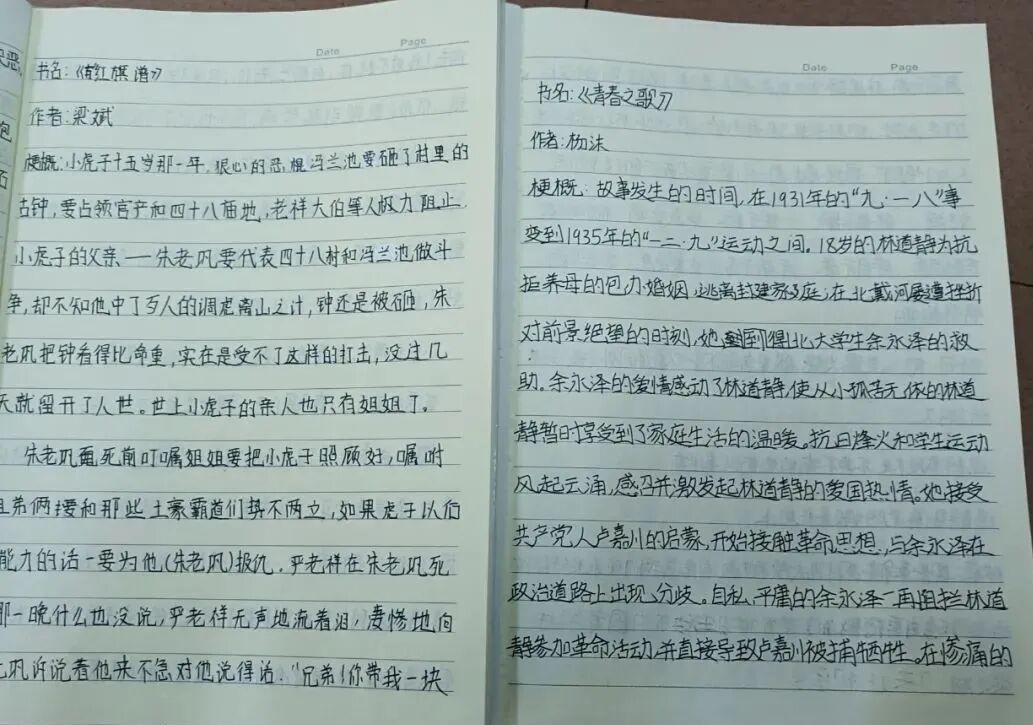 Date Page
书名:《红旗谱》
作者:梁斌
梗概:小虎子十五岁那一年,狠心的恶棍冯兰池要砸了村里的
古钟,要占领官产和四十八亩地,老祥大伯等人极力阻止.
小虎子的父亲——朱老巩要代表四十八村和冯兰池做斗
争,却不知他中了歹人的调虎离山之计,钟还是被砸,朱
老巩把钟看得比命重,实在是受不了这样的打击,没过几
天就留开了人世。世上小虎子的亲人也只有姐姐了。
朱老巩死前叮嘱姐姐要把小虎子照顾好,嘱咐
姐弟俩要和那些土豪霸道们势不两立,如果虎子以后
能力的话一要为他(朱老巩)报仇。严老祥在朱老巩死
那一晚什么也没说,严老祥无声地流着泪,凄惨地向
老巩诉说着他来不急对他说得话:“兄弟!你带我一块
Date Page
书名:《青春之歌》
作者:杨沫
梗概:故事发生的时间,在1931年的“九·一八”事
变到1935年的“一二·九”运动之间。18岁的林道静为抗
拒养母的包办婚姻,逃离封建家庭;在北戴河屡遭挫折
对前景绝望的时刻,她得到北大学生余永泽的救
助。余永泽的爱情感动了林道静,使从小孤苦无依的林道
静暂时享受到了家庭生活的温暖。抗日烽火和学生运动
风起云涌,感召并激发起林道静的爱国热情。她接受
共产党人卢嘉川的启蒙,开始接触革命思想,与余永泽在
政治道路上出现分歧。自私、平庸的余永泽一再阻拦林道
静参加革命活动,并直接导致卢嘉川被捕牺牲。在惨痛的